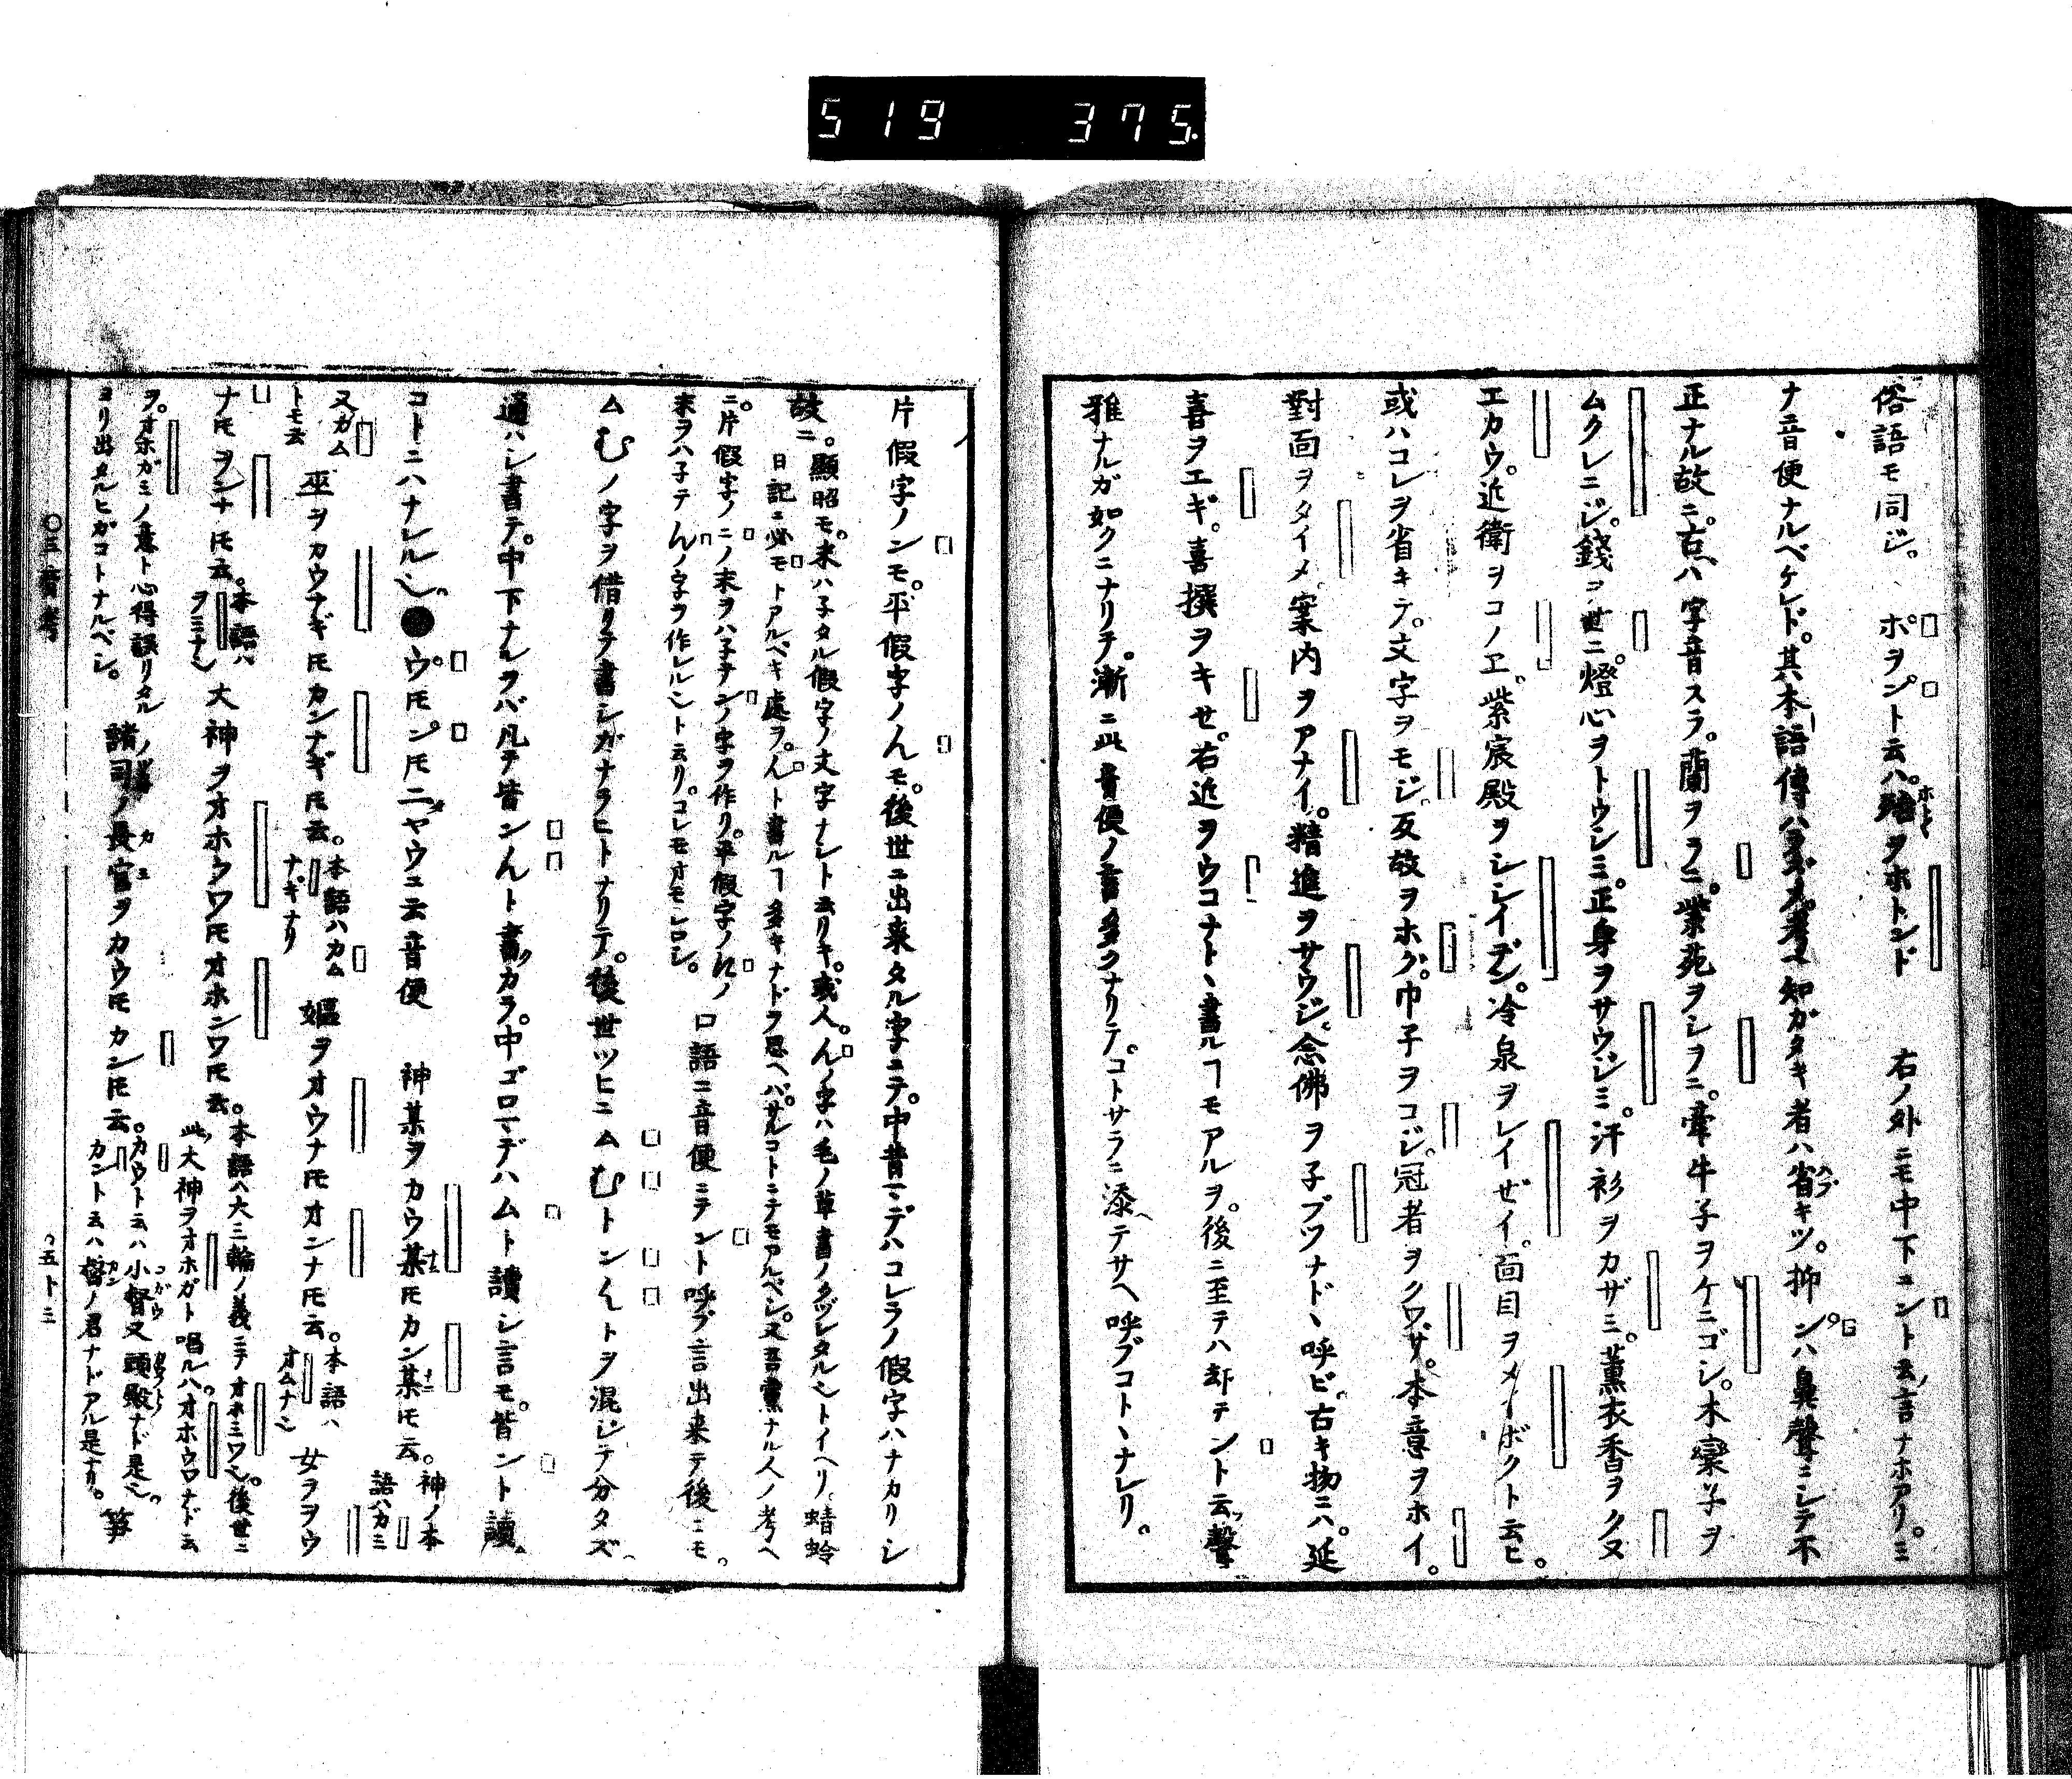 519 375.
俗語モ同ジ。 ポヲント云ハ。殆ヲホトンド 右ノ外ニモ中下ニント云言ナホアリ。ミ
ナ音便ナルベケレド。其本語傳ハラズ。考ヘ知ガタキ者ハ省キツ。抑ンハ鼻聲ニシテ不
正ナル故ニ。古ハ字音スラ。蘭ヲラニ。紫苑ヲシヲニ。牽牛子ヲケニゴシ。木欒子ヲ
ムクレニジ。錢ヲゼニ。燈心ヲトウシミ。正身ヲサウジミ。汗衫ヲカザミ。薫衣香ヲクヌ
エカウ。近衛ヲコノヱ。紫宸殿ヲシシイデン。冷泉ヲレイゼイ。面目ヲメイボクト云ヒ。
或ハコレヲ省キテ。文字ヲモジ。反故ヲホグ。巾子ヲコジ。冠者ヲクワザ。本意ヲホイ。
對面ヲタイメ。案内ヲアナイ。精進ヲサウジ。念佛ヲ子ブツナド、呼ビ。古キ物ニハ。延
喜ヲエギ。喜撰ヲキセ。右近ヲウコナト、書ルヿモアルヲ。後ニ至テハ却テント云聲
雅ナルガ如クニナリテ。漸ニ此音便ノ音多クナリテ。コトサラニ添テサヘ呼ブコト、ナレリ。
片假字ノンモ。平假字ノんモ。後世ニ出来タル字ニテ。中昔マデハコレラノ假字ハナカリシ
故ニ。顯昭モ。末ハ子タル假字ノ文字ナシト云リキ。或人。んノ字ハ毛ノ草書ノクヅレタルシトイヘリ。蜻蛉
日記ニ必モトアルベキ處ヲ。んト書ルヿ多キナドヲ思ヘバ。サルコトニテモアルベシ。又吾黨ナル人ノ考ヘ
ニ。片假字ノニノ末ヲハ子テンノ字ヲ作リ。平假字ノんノ
末ヲハ子テんノ字ヲ作レルシト云リ。コレモオモシロシ。 口語ニ音便ニテント呼ブ言出来テ後ニモ。
ムむノ字ヲ借リテ書シガナラヒトナリテ。後世ツヒニムむトンんトヲ混ジテ分タズ
通ハシ書テ。中下ナルヲバ凡テ皆ンんト書カラ。中ゴロマデハムト讀シ言モ。皆ント讀
コトニハナレルシ。●ウトモントモニヤウニ云音便 神某ヲカウ某トモカン某トモ云。神ノ本語ハカミ
又カムトモ云 巫ヲカウナギトモカンナギトモ云。本語ハカムナギナリ 嫗ヲオウナトモオンナトモ云。本語ハオムナシ 女ヲヲウ
ナトモヲンナトモ云。本語ハヲミナシ 大神ヲオホウワトモオホンワトモ云。本語ハ大三輪ノ義ニテオホミワシ。後世ニ此大神ヲオホガト唱ルハ。オホウワナド云
ヲ。オホガミノ意ト心得誤リタルヨリ出タルヒガコトナルベシ。 諸司ノ長官ヲカウトモカントモ云。カウト云ハ小督又頭殿ナド是シ。カント云ハ督ノ君ナドアル是ナリ。 笋
〇三音考 五十三